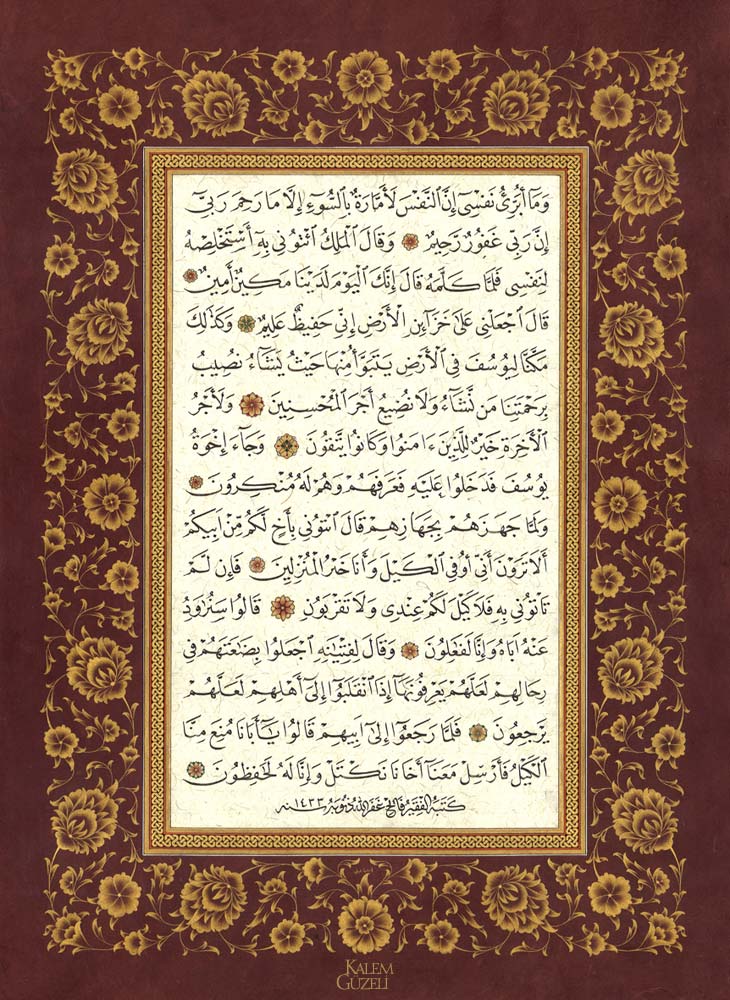 وَمَا أُبَرِّئُ نَفْسِي إِنَّ النَّفْسَ لَأَمَّارَةٌ بِالسُّوءِ إِلَّا مَا رَحِمَ رَبِّي
إِنَّ رَبِّي غَفُورٌ رَّحِيمٌ وَقَالَ الْمَلِكُ ائْتُونِي بِهِ أَسْتَخْلِصْهُ
لِنَفْسِي فَلَمَّا كَلَّمَهُ قَالَ إِنَّكَ الْيَوْمَ لَدَيْنَا مَكِينٌ أَمِينٌ
قَالَ اجْعَلْنِي عَلَىٰ خَزَائِنِ الْأَرْضِ إِنِّي حَفِيظٌ عَلِيمٌ وَكَذَٰلِكَ
مَكَّنَّا لِيُوسُفَ فِي الْأَرْضِ يَتَبَوَّأُ مِنْهَا حَيْثُ يَشَاءُ نُصِيبُ
بِرَحْمَتِنَا مَن نَّشَاءُ وَلَا نُضِيعُ أَجْرَ الْمُحْسِنِينَ وَلَأَجْرُ
الْآخِرَةِ خَيْرٌ لِّلَّذِينَ ءَامَنُوا وَكَانُوا يَتَّقُونَ وَجَاءَ إِخْوَةُ
يُوسُفَ فَدَخَلُوا عَلَيْهِ فَعَرَفَهُمْ وَهُمْ لَهُ مُنكِرُونَ
وَلَمَّا جَهَّزَهُم بِجَهَازِهِمْ قَالَ ائْتُونِي بِأَخٍ لَّكُم مِّنْ أَبِيكُمْ
أَلَا تَرَوْنَ أَنِّي أُوفِي الْكَيْلَ وَأَنَا خَيْرُ الْمُنزِلِينَ فَإِن لَّمْ
تَأْتُونِي بِهِ فَلَا كَيْلَ لَكُمْ عِندِي وَلَا تَقْرَبُونِ قَالُوا سَنُرَاوِدُ
عَنْهُ أَبَاهُ وَإِنَّا لَفَٰعِلُونَ وَقَالَ لِفِتْيَٰنِهِ اجْعَلُوا بِضَٰعَتَهُمْ فِي
رِحَالِهِمْ لَعَلَّهُمْ يَعْرِفُونَهَا إِذَا انقَلَبُوا إِلَىٰ أَهْلِهِمْ لَعَلَّهُمْ
يَرْجِعُونَ فَلَمَّا رَجَعُوا إِلَىٰ أَبِيهِمْ قَالُوا يَا أَبَانَا مُنِعَ مِنَّا
الْكَيْلُ فَأَرْسِلْ مَعَنَا أَخَانَا نَكْتَلْ وَإِنَّا لَهُ لَحَٰفِظُونَ
كتبه الفقير فاتح غفر الله ذنوبه سنه ١٤٣٣
KALEM
GÜZELİ